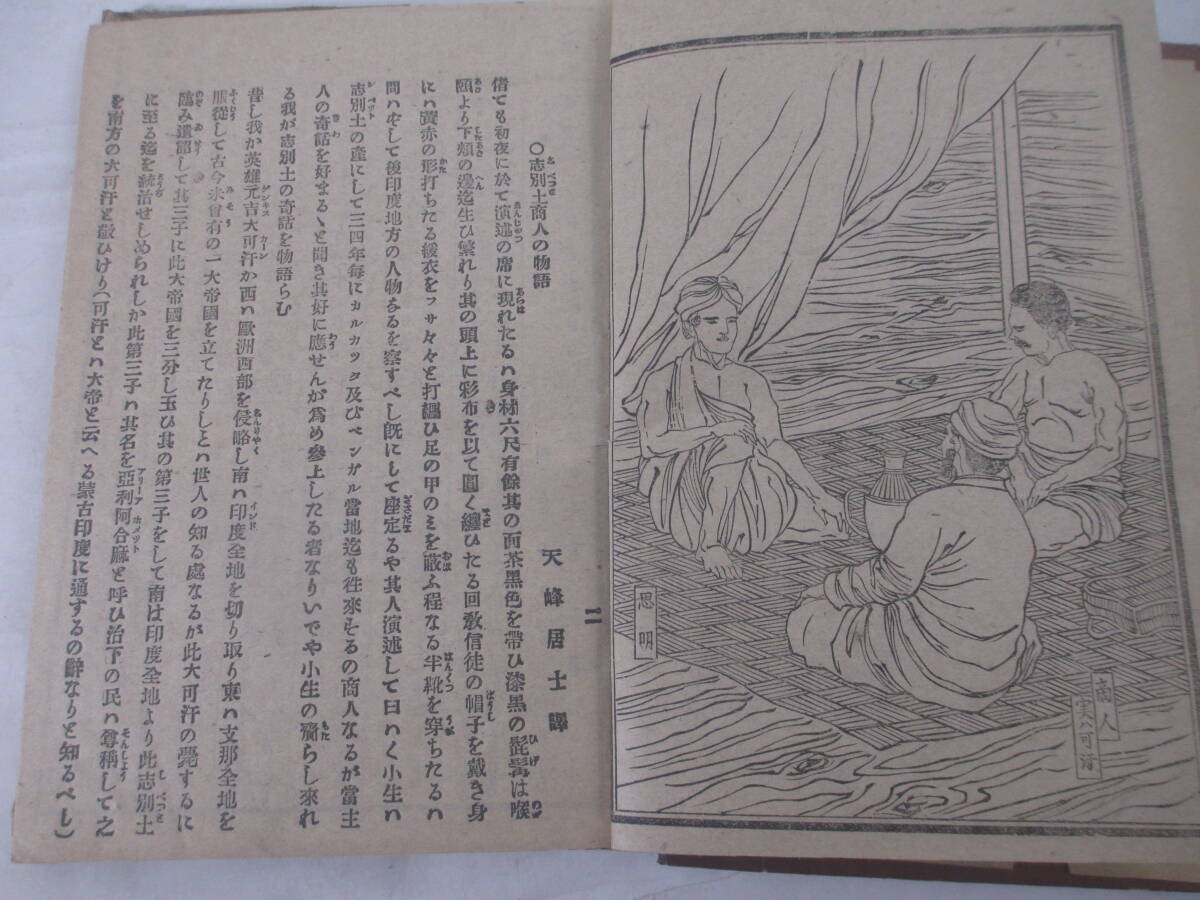 思明
商人
天峰居士譯
二
〇志別土商人の物語
偖ても初夜に於て演述の席に現れたるハ身材六尺有餘其の面茶黑色を帶ひ漆黑の髭髯は喉
頤より下頰の邊迄生ひ繁れり其の頭上に彩布を以て圓く纏ひたる回敎信徒の帽子を戴き身
にハ黃赤の形打ちたる緩衣をフサ々々と打纒ひ足の甲のミを蔽ふ程なる半靴を穿ちたるハ
問ハずして後印度地方の人物なるを察すべし旣にして座定るや其人演述して曰ハく小生ハ
志別土の產にして三四年每にカルカッタ及びベンガル當地迄も徃來をするの商人なるが當主
人の奇話を好まるゝと聞き其好に應せんが爲め參上したる者なりいでや小生の齎らし來れ
る我が志別土の奇話を物語らむ
昔し我か英雄元吉大可汗か西ハ歐洲西部を侵略し南ハ印度全地を切り取り東ハ支那全地を
服從して古今未曾有の一大帝國を立てたりしとハ世人の知る處なるが此大可汗の薨するに
臨み遺詔して其三子に此大帝國を三分し玉ひ其の第三子をして南は印度全地より此志別土
に至る迄を統治せしめられしか此第三子ハ其名を亞利阿合麻と呼ひ治下の民ハ尊稱して之
を南方の大可汗と敬ひけり(可汗とハ大帝と云へる蒙古印度に通するの辭なりと知るべし)